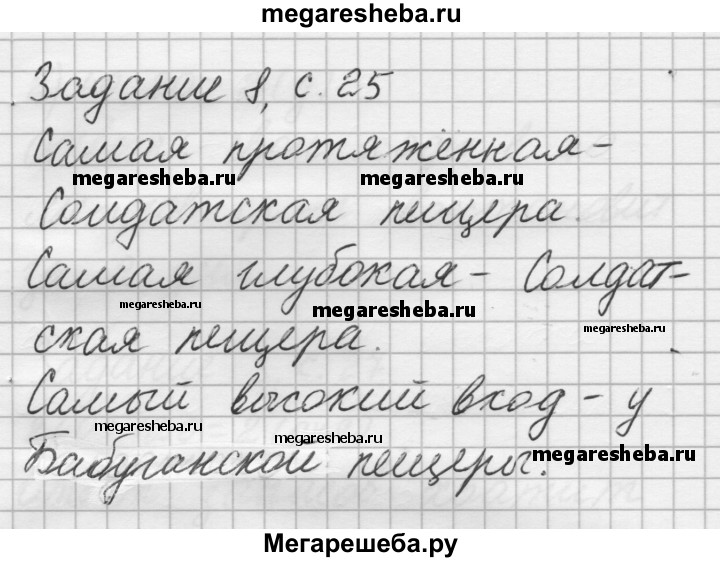 megaresheba.ru
Задание 8, с. 25
Самая протяжённая -
megaresheba.ru megaresheba.ru
Солдатская пещера.
Самая глубокая - Солдат-
megaresheba.ru megaresheba.ru megaresheba.ru
ская пещера.
Самый высокий вход - у
megaresheba.ru megaresheba.ru megaresheba.ru
Бабуганской пещеры.
Мегарешеба.ру